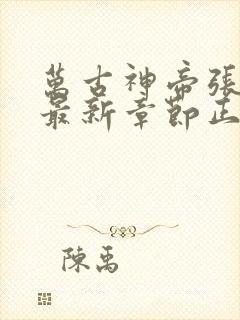 萬古神帝張
最新章節正
陳禹